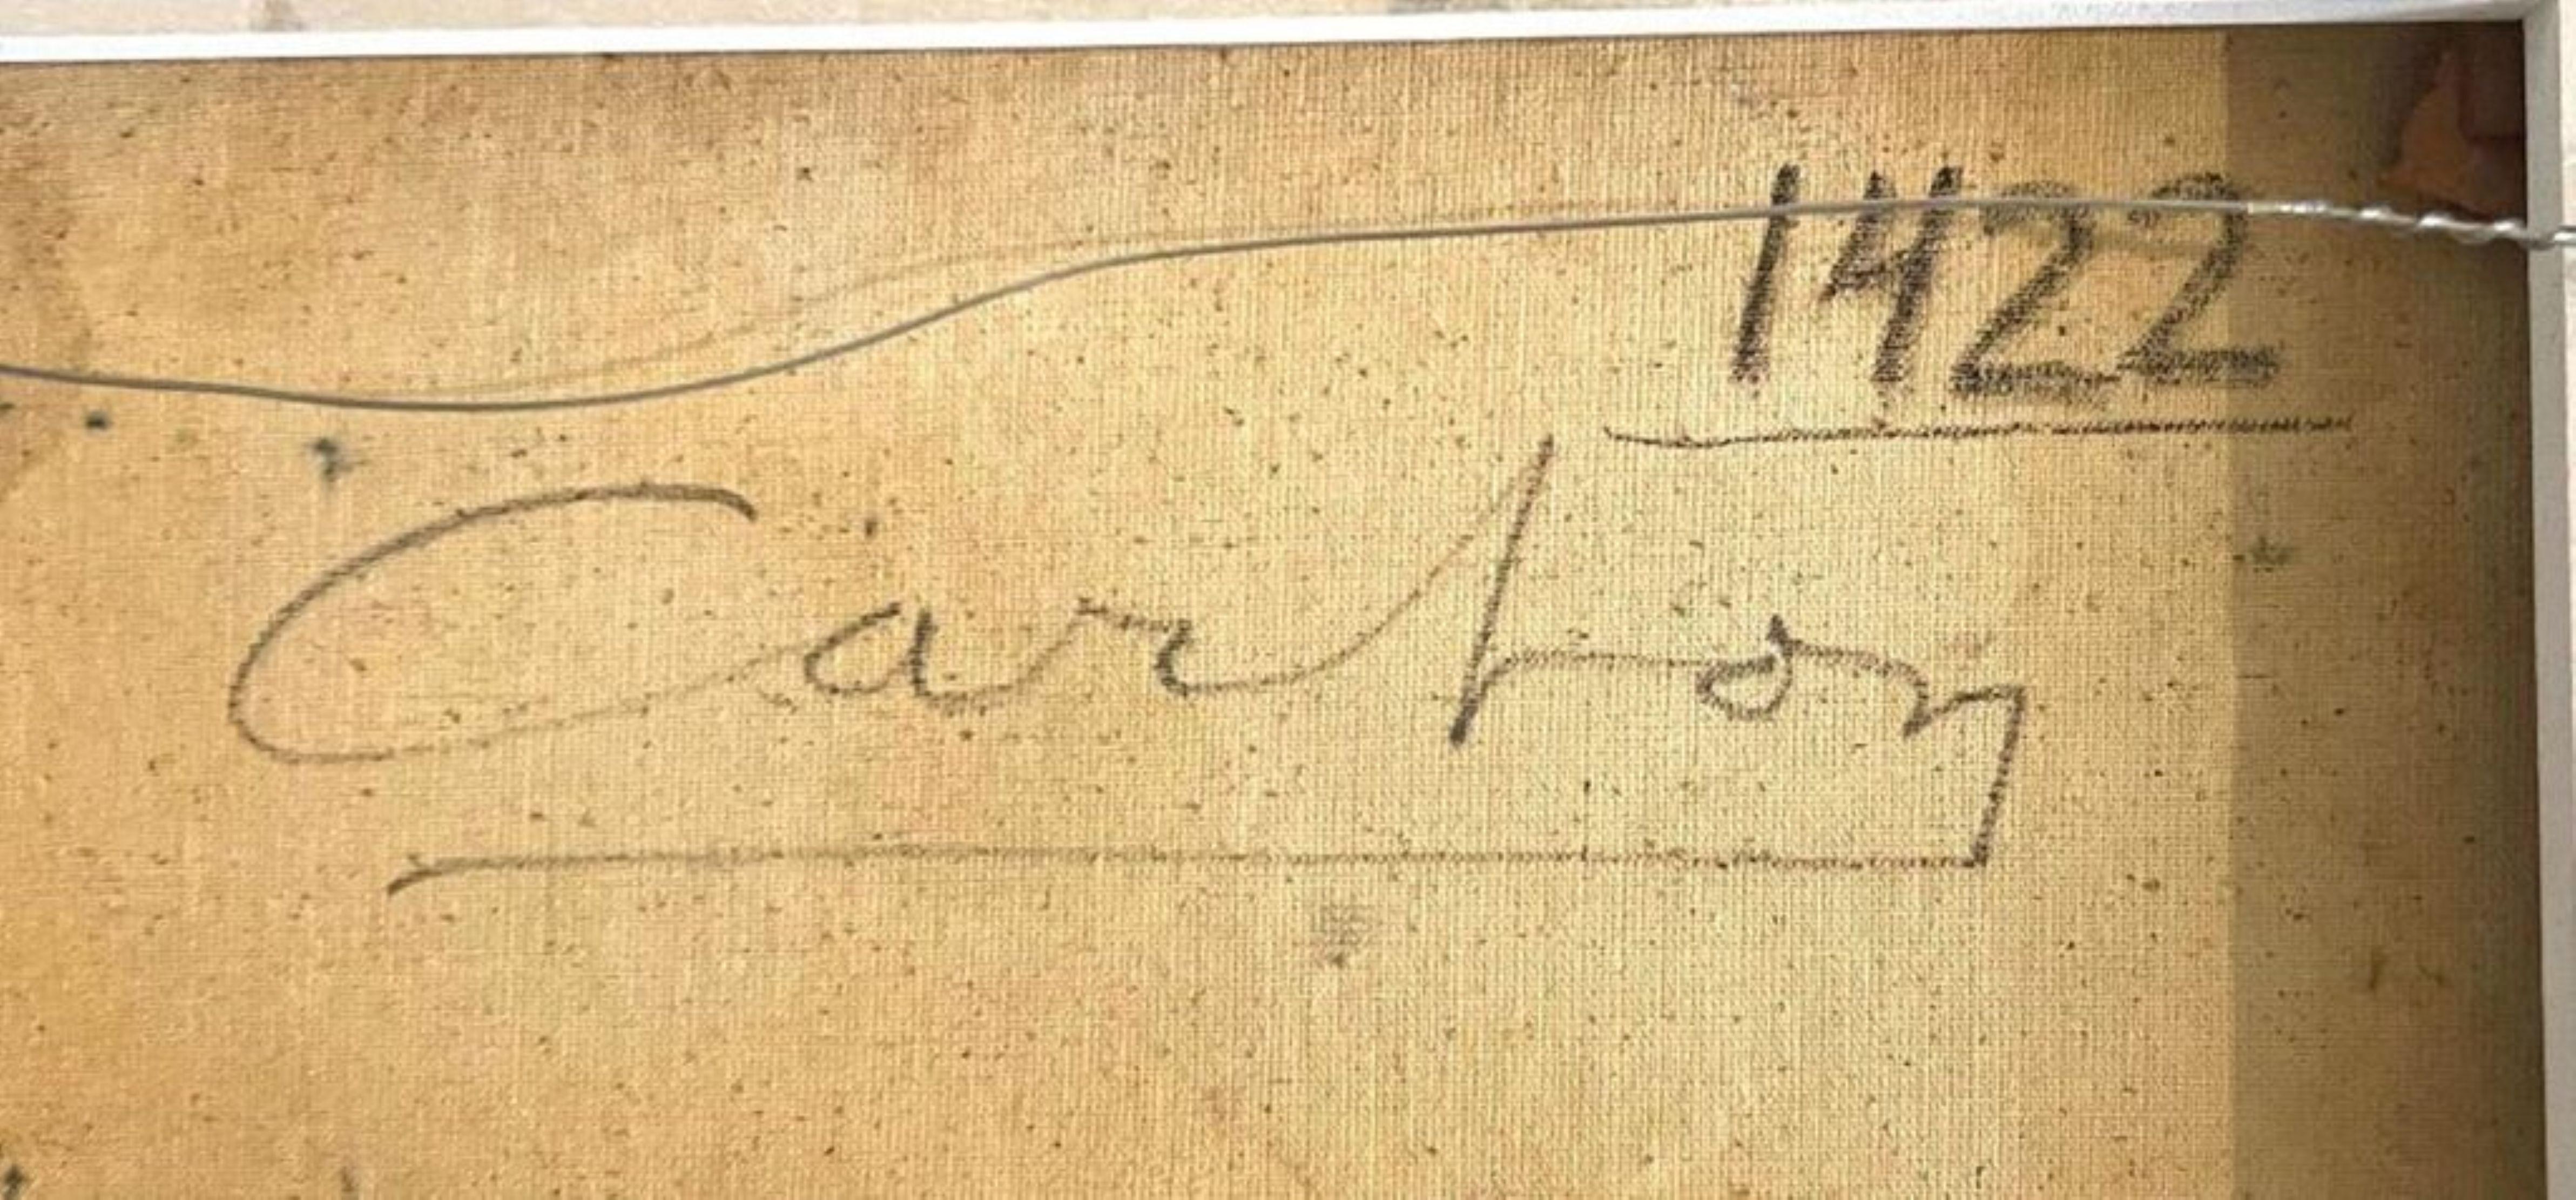 1422
Carton